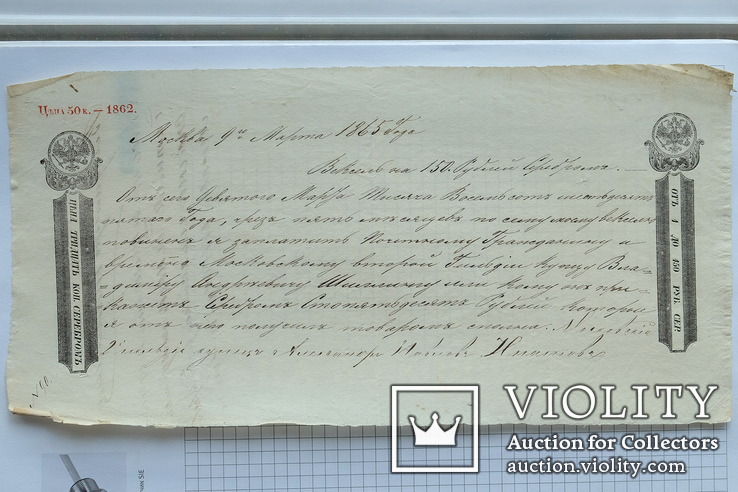 Цѣна 50 к. – 1862.
Москва 9го Марта 1865 Года
Вексель на 150 Рублей Серебромъ.
Отъ сего Девятого Марта Тысяча Восемьсотъ шестьдесятъ
пятаго Года, чрезъ пять мѣсяцевъ по сему моему векселю
повиненъ я заплатить Почтному Гражданину и
Временно Московскому второй Гильдіи купцу Вла-
диміру Андреевичу или кому онъ при-
кажетъ Серебромъ Стопятьдесятъ Рублей которые
я отъ него получилъ товаромъ сполна.
купецъ Александръ
ЦѢНА ТРИДЦАТЬ КОП. СЕРЕБРОМЪ.
ОТЪ 1 ДО 150 РУБ. СЕР.
VIOLITY
Auction for Collectors
auction.violity.com